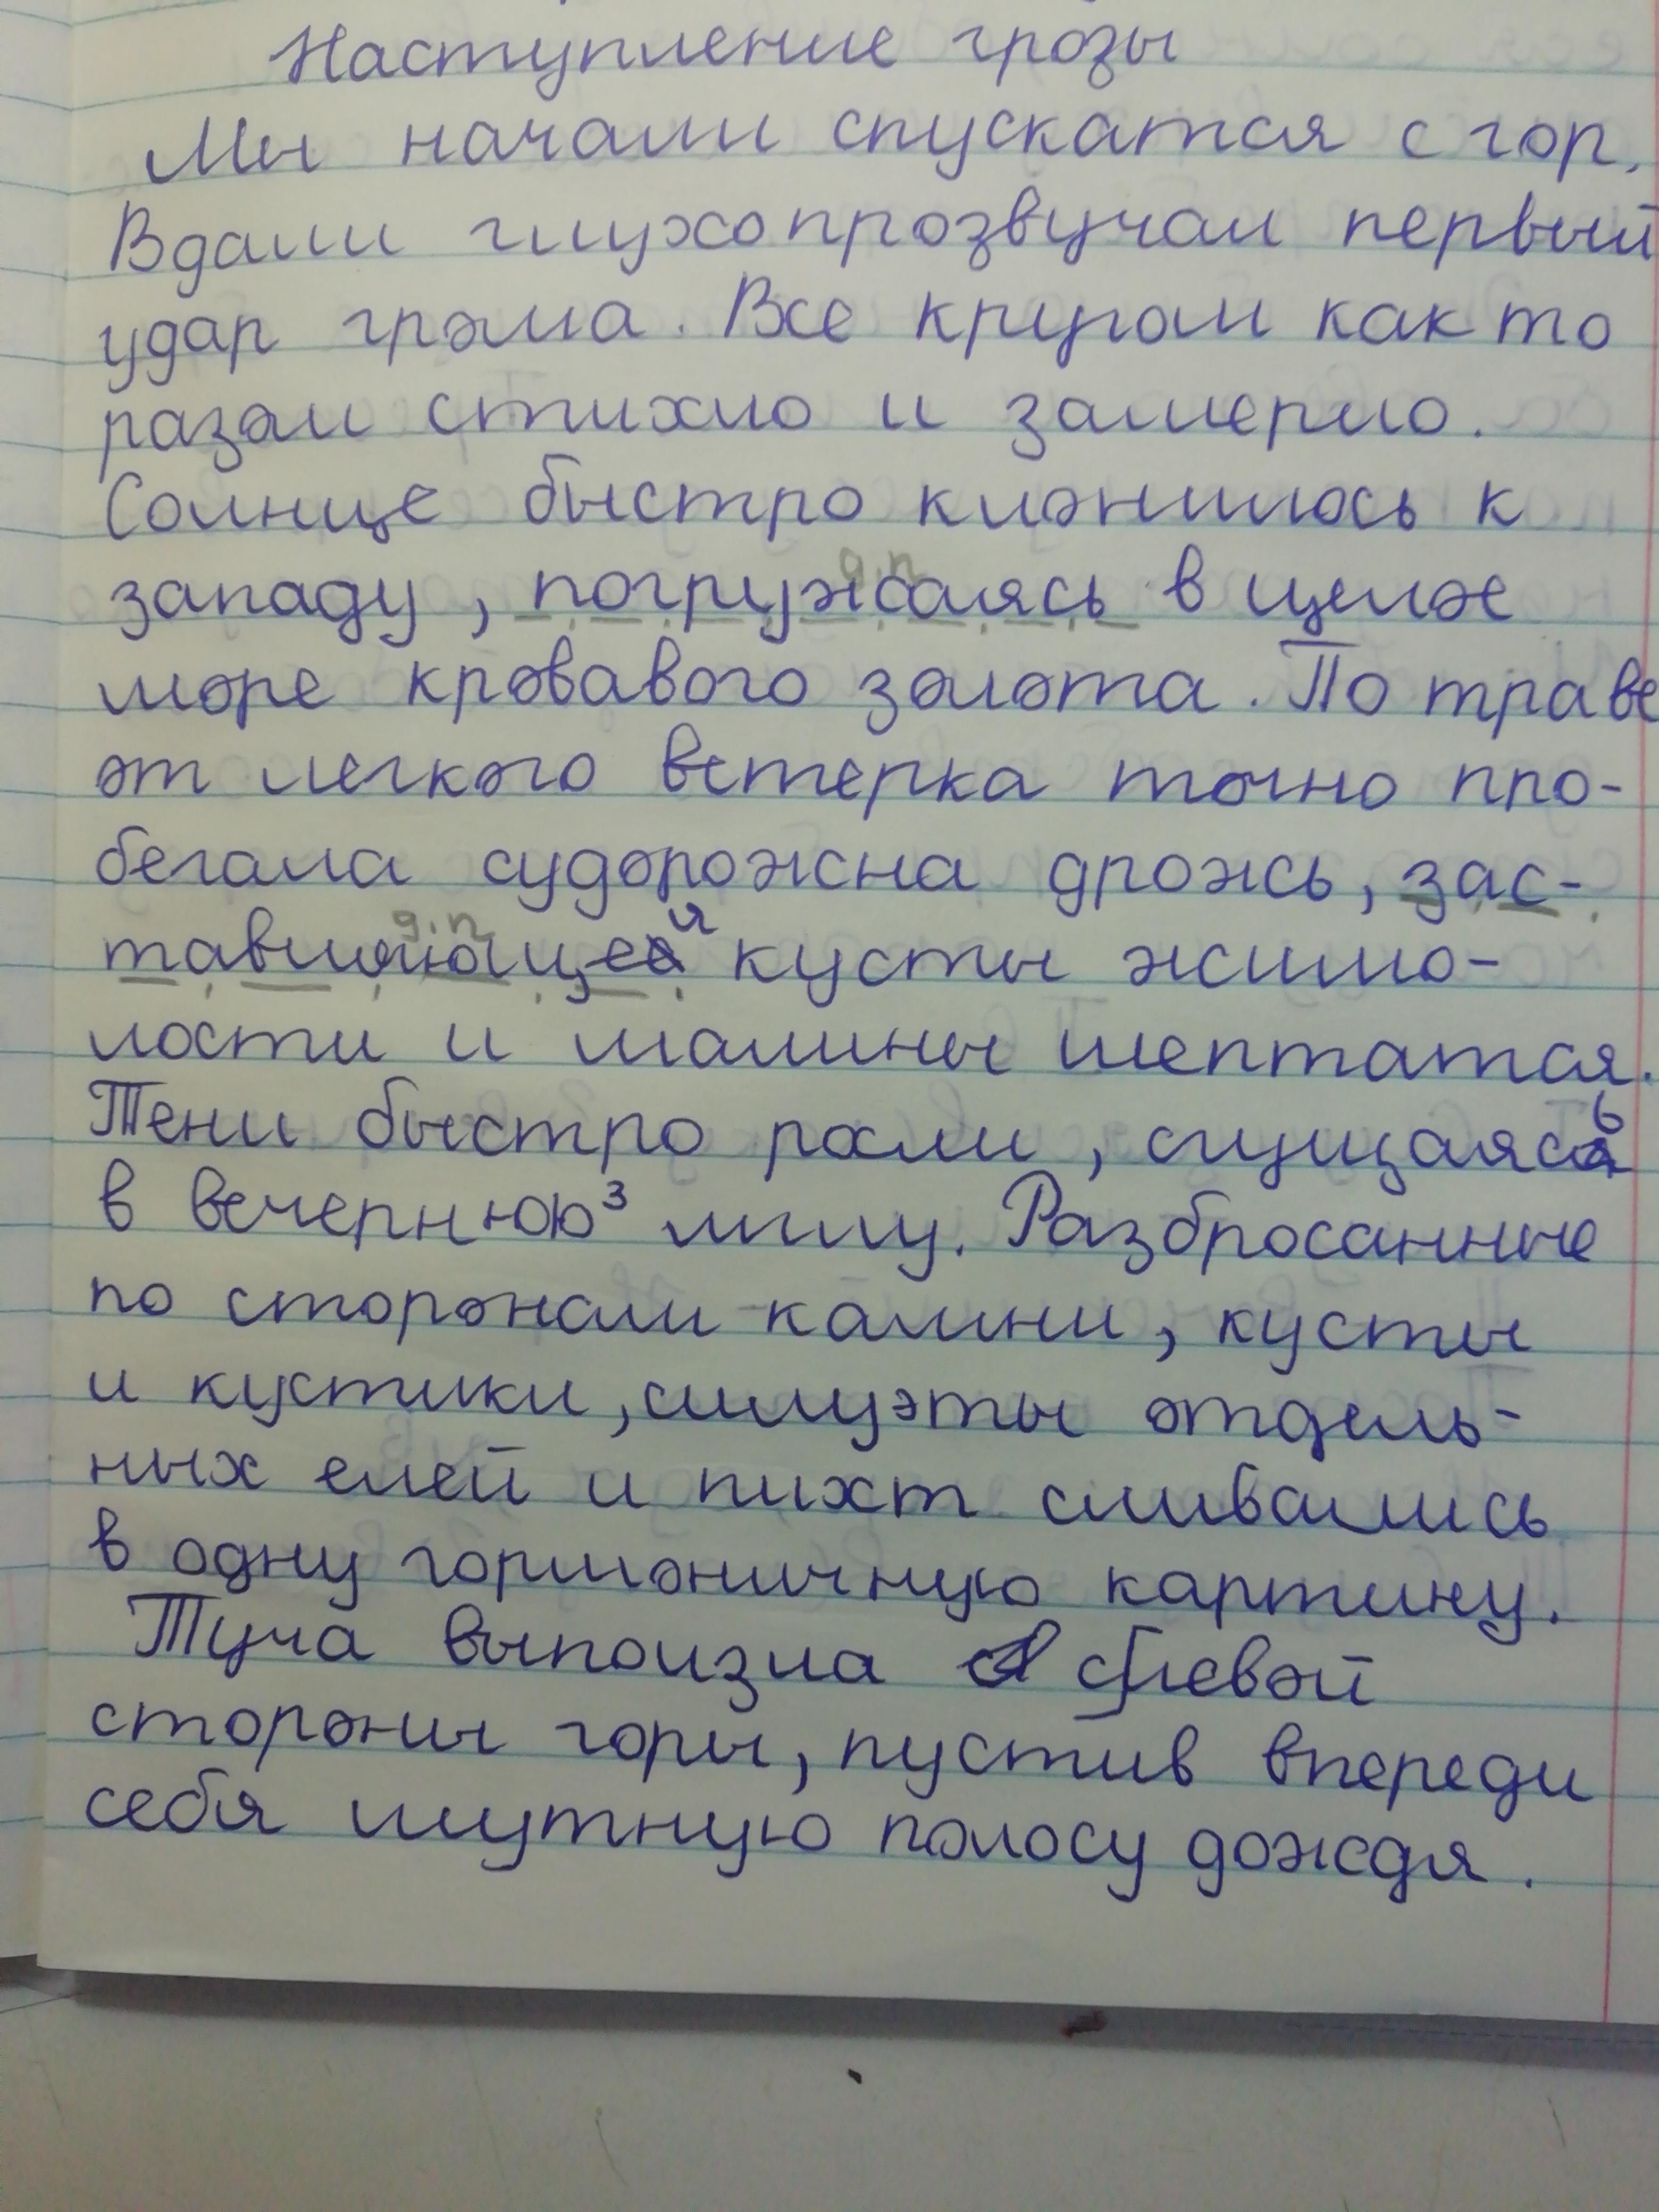 Наступление грозы
Мы начали спускатся с гор.
Вдали глухо прозвучал первый
удар грома. Все кругом как то
разом стихло и замерло.
Солнце быстро клонилось к
д.п
западу, погружаясь в целое
море кровавого золота. По траве
от легкого ветерка точно про-
бегала судорожна дрожь, зас-
д.п
тавляющей кусты жимо-
лости и малины шептатся.
Тени быстро росли, сгущаясь
в вечернюю³ мглу. Разбросанные
по сторонам камни, кусты
и кустики, силуэты отдель-
ных елей и пихт сливались
в одну гормоничную картину.
Туча выползла с левой
стороны горы, пустив впереди
себя мутную полосу дождя.